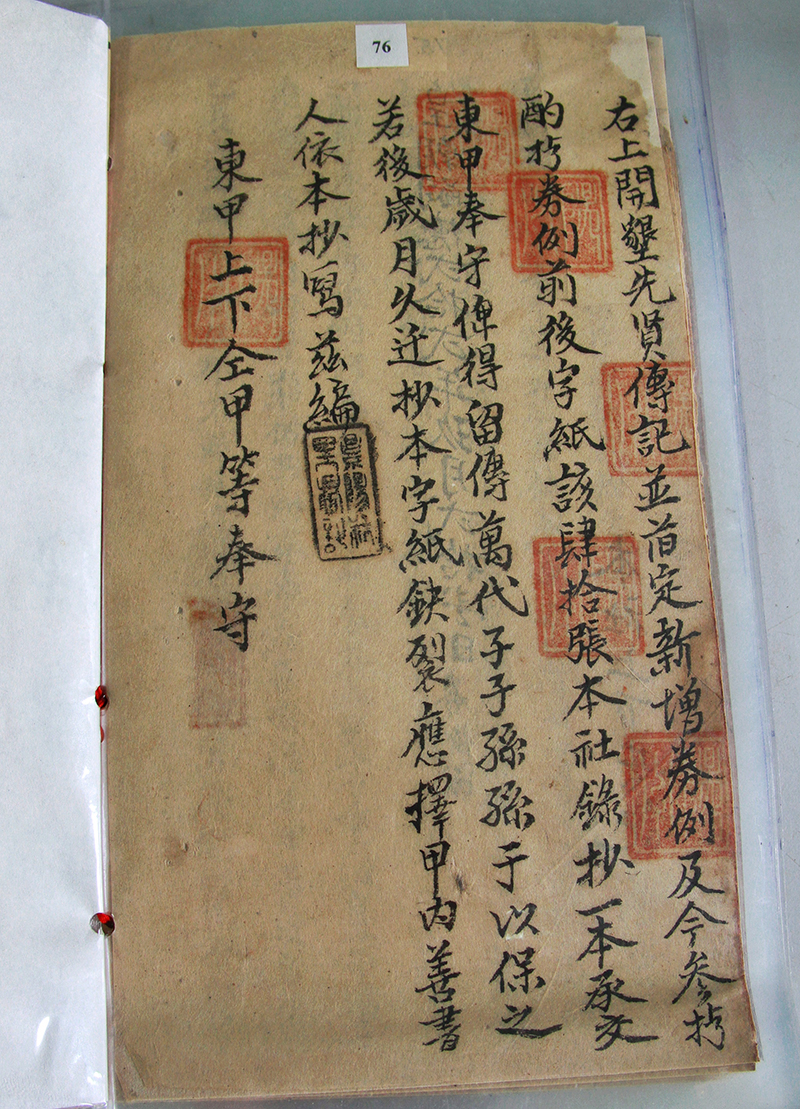 76
右上開墾先賢傳記並首定新增券例及今參拧
酌拧券例前後字紙該肆拾張本社錄抄一本承交
東甲奉守俾得留傳萬代子子孫孫于以保之
若後歲月久迁抄本字紙缺裂應擇甲内善書
人依本抄寫茲編
東甲上下仝甲等奉守